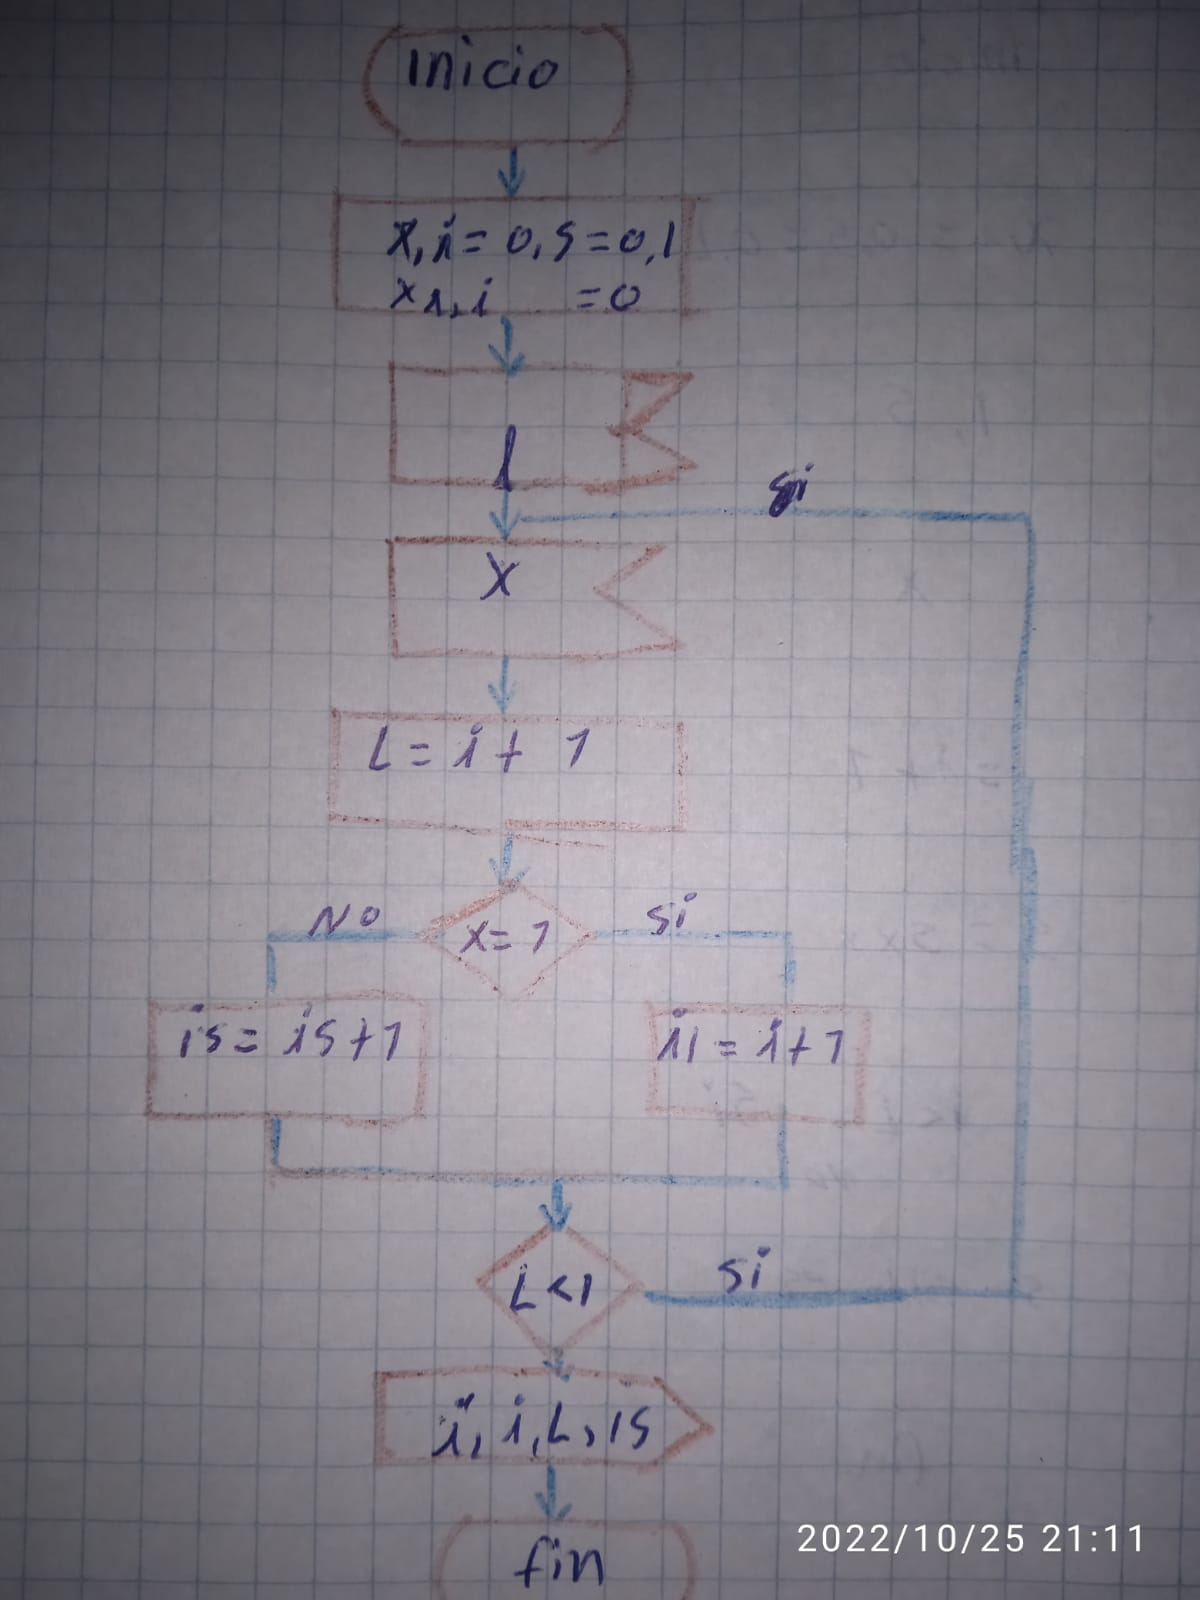 Inicio
X, i = 0, S = 0, 1
X1, i = 0
1
Si
X
L = i + 1
No
X = 1
Si
iS = iS + 1
i1 = i + 1
L < 1
Si
i, i, L, iS
fin
2022/10/25 21:11